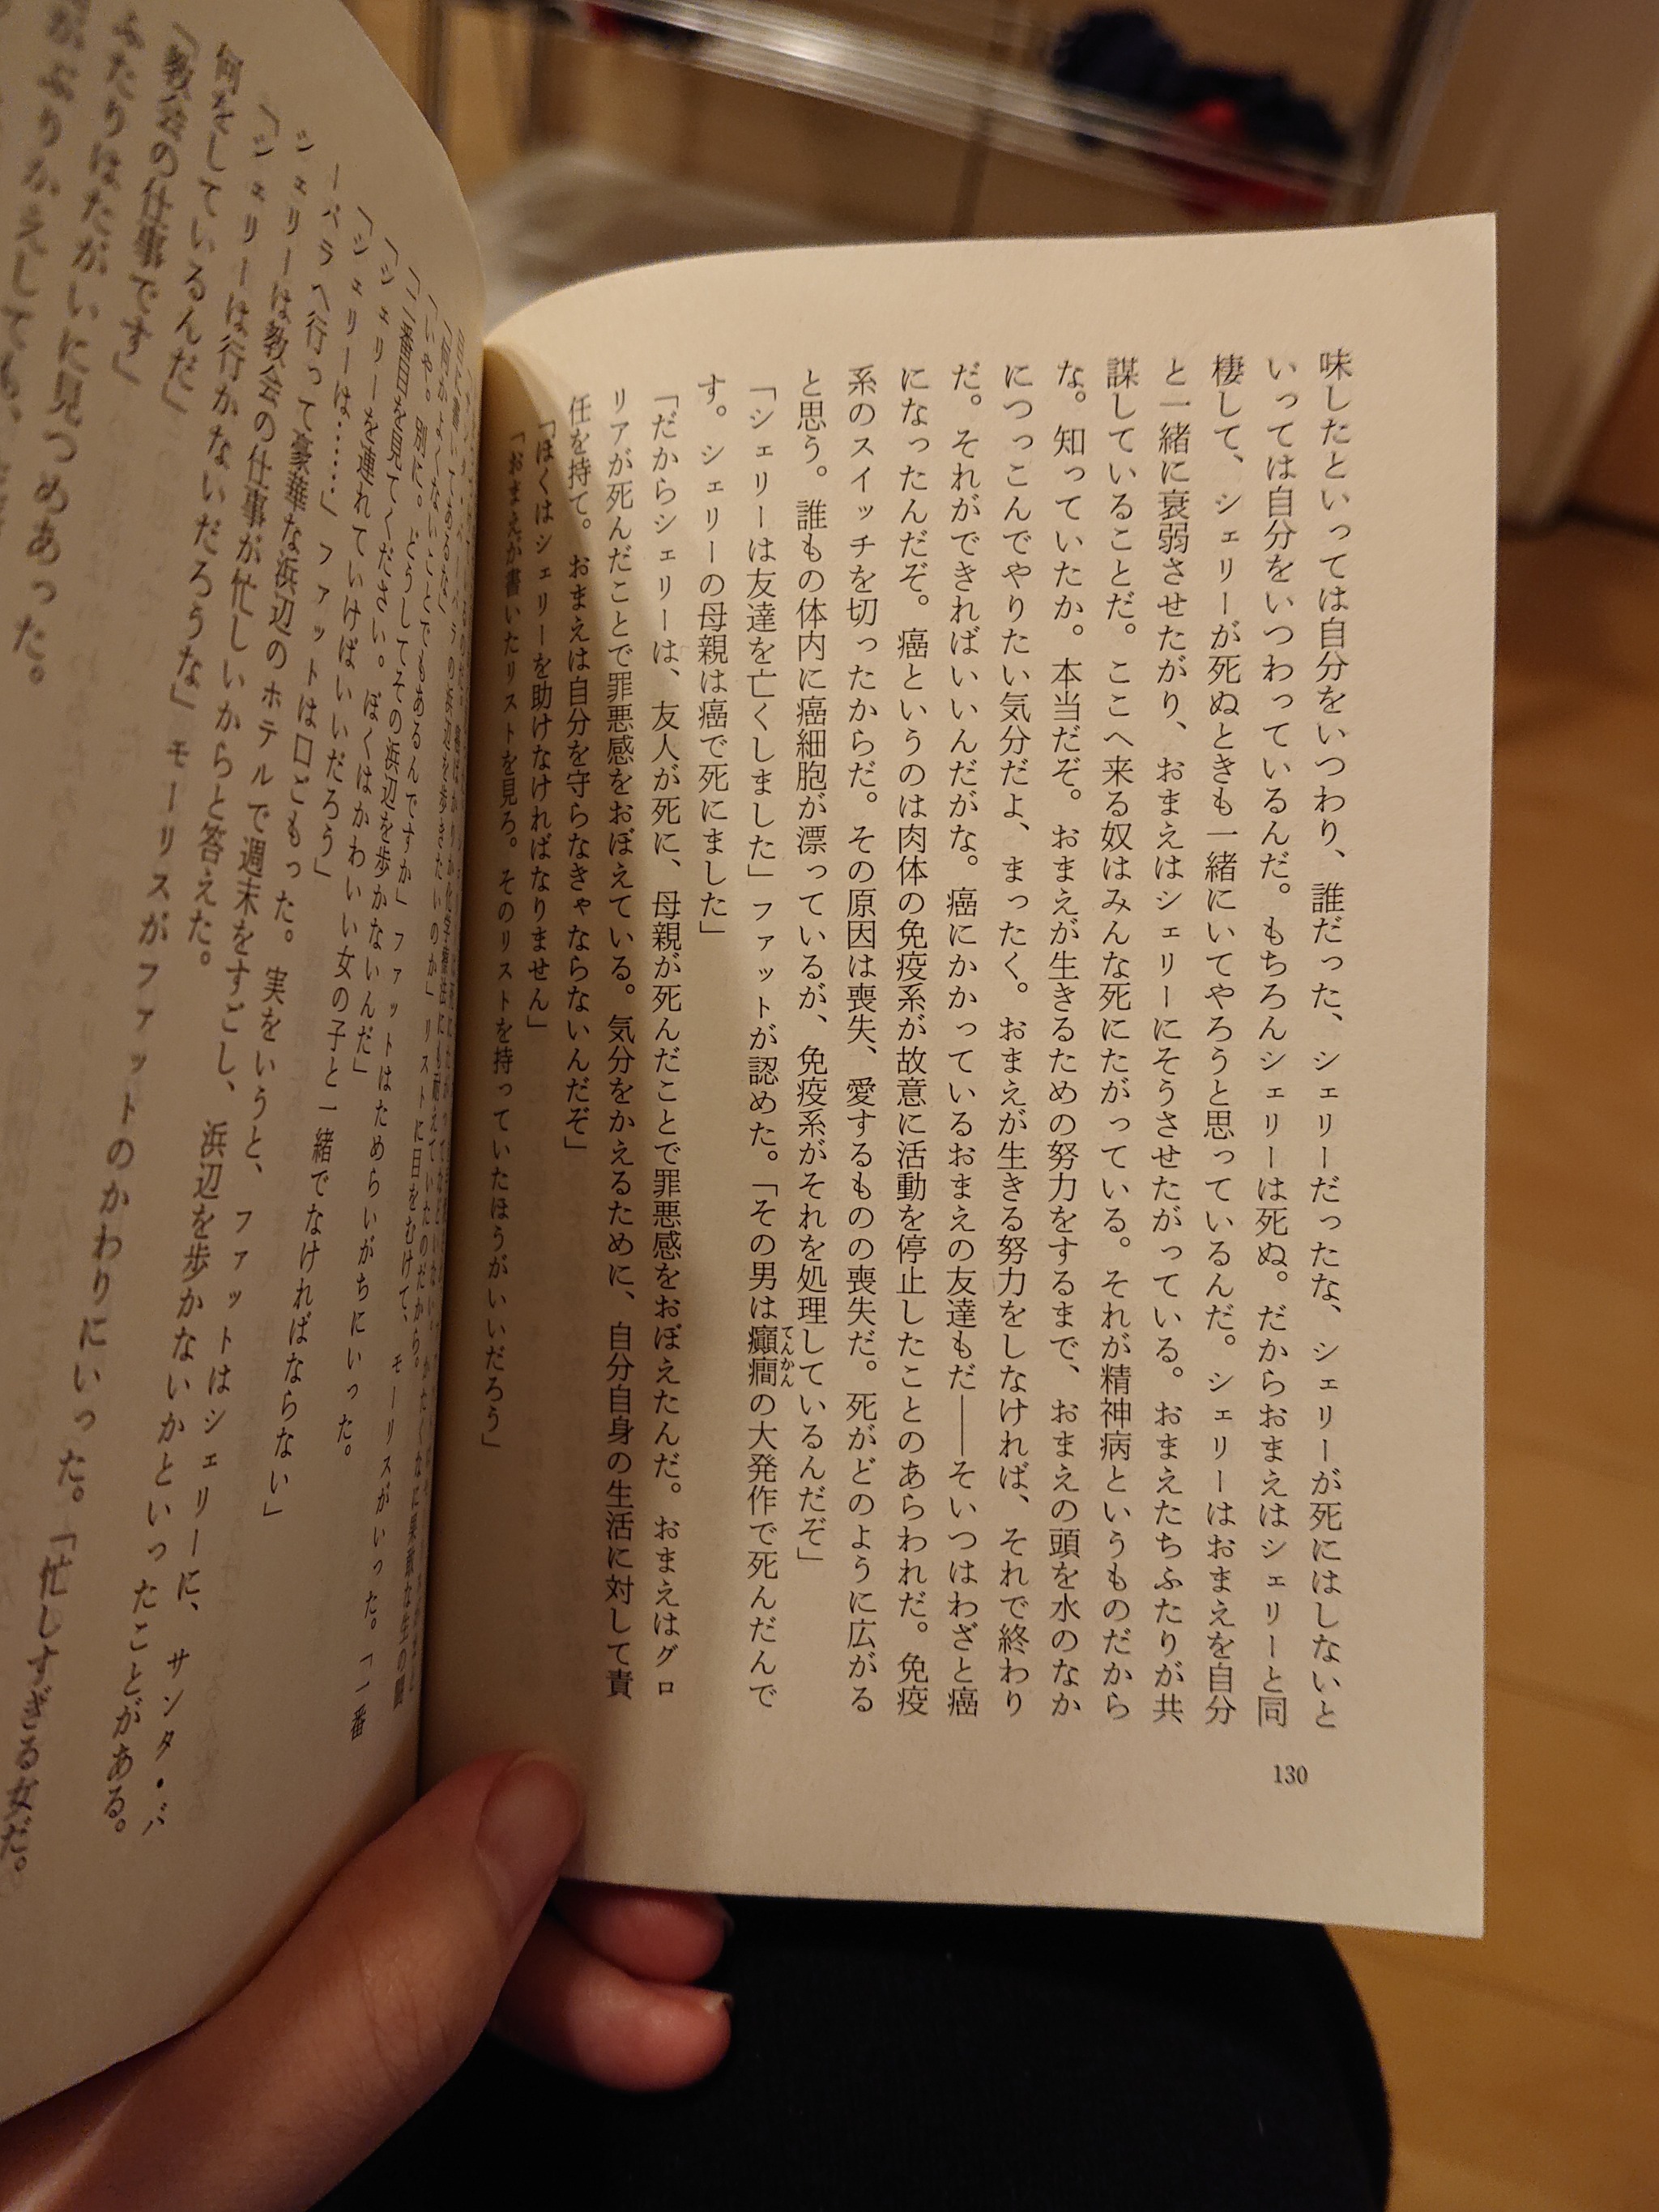 味したといっては自分をいつわり、誰だった、シェリーだったな、シェリーが死にはしないと
いっては自分をいつわっているんだ。もちろんシェリーは死ぬ。だからおまえはシェリーと同
棲して、シェリーが死ぬときも一緒にいてやろうと思っているんだ。シェリーはおまえを自分
と一緒に衰弱させたがり、おまえはシェリーにそうさせたがっている。おまえたちふたりが共
謀していることだ。ここへ来る奴はみんな死にたがっている。それが精神病というものだから
な。知っていたか。本当だぞ。おまえが生きるための努力をするまで、おまえの頭を水のなか
につっこんでやりたい気分だよ、まったく。おまえが生きる努力をしなければ、それで終わり
だ。それができればいいんだがな。癌にかかっているおまえの友達もだ――そいつはわざと癌
になったんだぞ。癌というのは肉体の免疫系が故意に活動を停止したことのあらわれだ。免疫
系のスイッチを切ったからだ。その原因は喪失、愛するものの喪失だ。死がどのように広がる
と思う。誰もの体内に癌細胞が漂っているが、免疫系がそれを処理しているんだぞ」
「シェリーは友達を亡くしました」ファットが認めた。「その男は癲癇てんかんの大発作で死んだんで
す。シェリーの母親は癌で死にました」
「だからシェリーは、友人が死に、母親が死んだことで罪悪感をおぼえたんだ。おまえはグロ
リアが死んだことで罪悪感をおぼえている。気分をかえるために、自分自身の生活に対して責
任を持て。おまえは自分を守らなきゃならないんだぞ」
「ぼくはシェリーを助けなければなりません」
「おまえが書いたリストを見ろ。そのリストを持っていたほうがいいだろう」
130
リストに目をむけて、モーリスがいった。「一番
「いや。別に。どうしてその浜辺を歩かないんだ」
「二番目を見てください。ぼくはかわいい女の子と一緒でなければならない」
「シェリーを連れていけばいいだろう」
「シェリーは……」ファットは口ごもった。実をいうと、ファットはシェリーに、サンタ・バ
ーバラへ行って豪華な浜辺のホテルで週末をすごし、浜辺を歩かないかといったことがある。
シェリーは教会の仕事が忙しいからと答えた。
「シェリーは行かないだろうな」モーリスがファットのかわりにいった。「忙しすぎる女だ。
何をしているんだ」
「教会の仕事です」
ふたりはたがいに見つめあった。